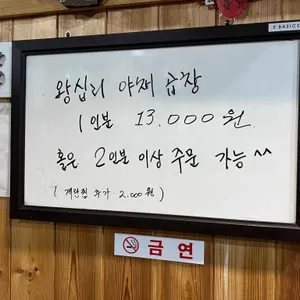 E-BASICS
왕십리 야채 곱창
1인분 13.000원
홀은 2인분 이상 주문 가능^^
(계란찜 추가 2.000원)
금연